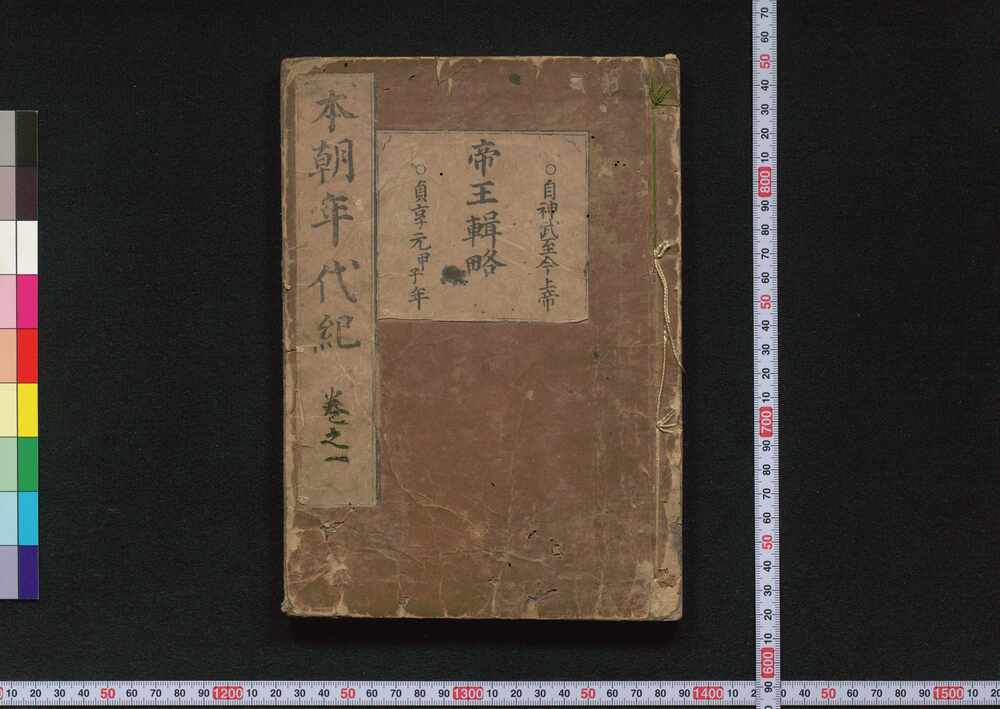 本朝年代紀 巻之一
○自神武至今上帝
帝王輯略
○貞享元甲子年
70
60
50
40
30
20
10
800
90
80
70
60
50
40
30
20
10
700
90
80
70
60
50
40
30
20
10
600
90
10 20 30 40 50 60 70 80 90 1200 10 20 30 40 50 60 70 80 90 1300 10 20 30 40 50 60 70 80 90 1400 10 20 30 40 50 60 70 80 90 1500 10 20